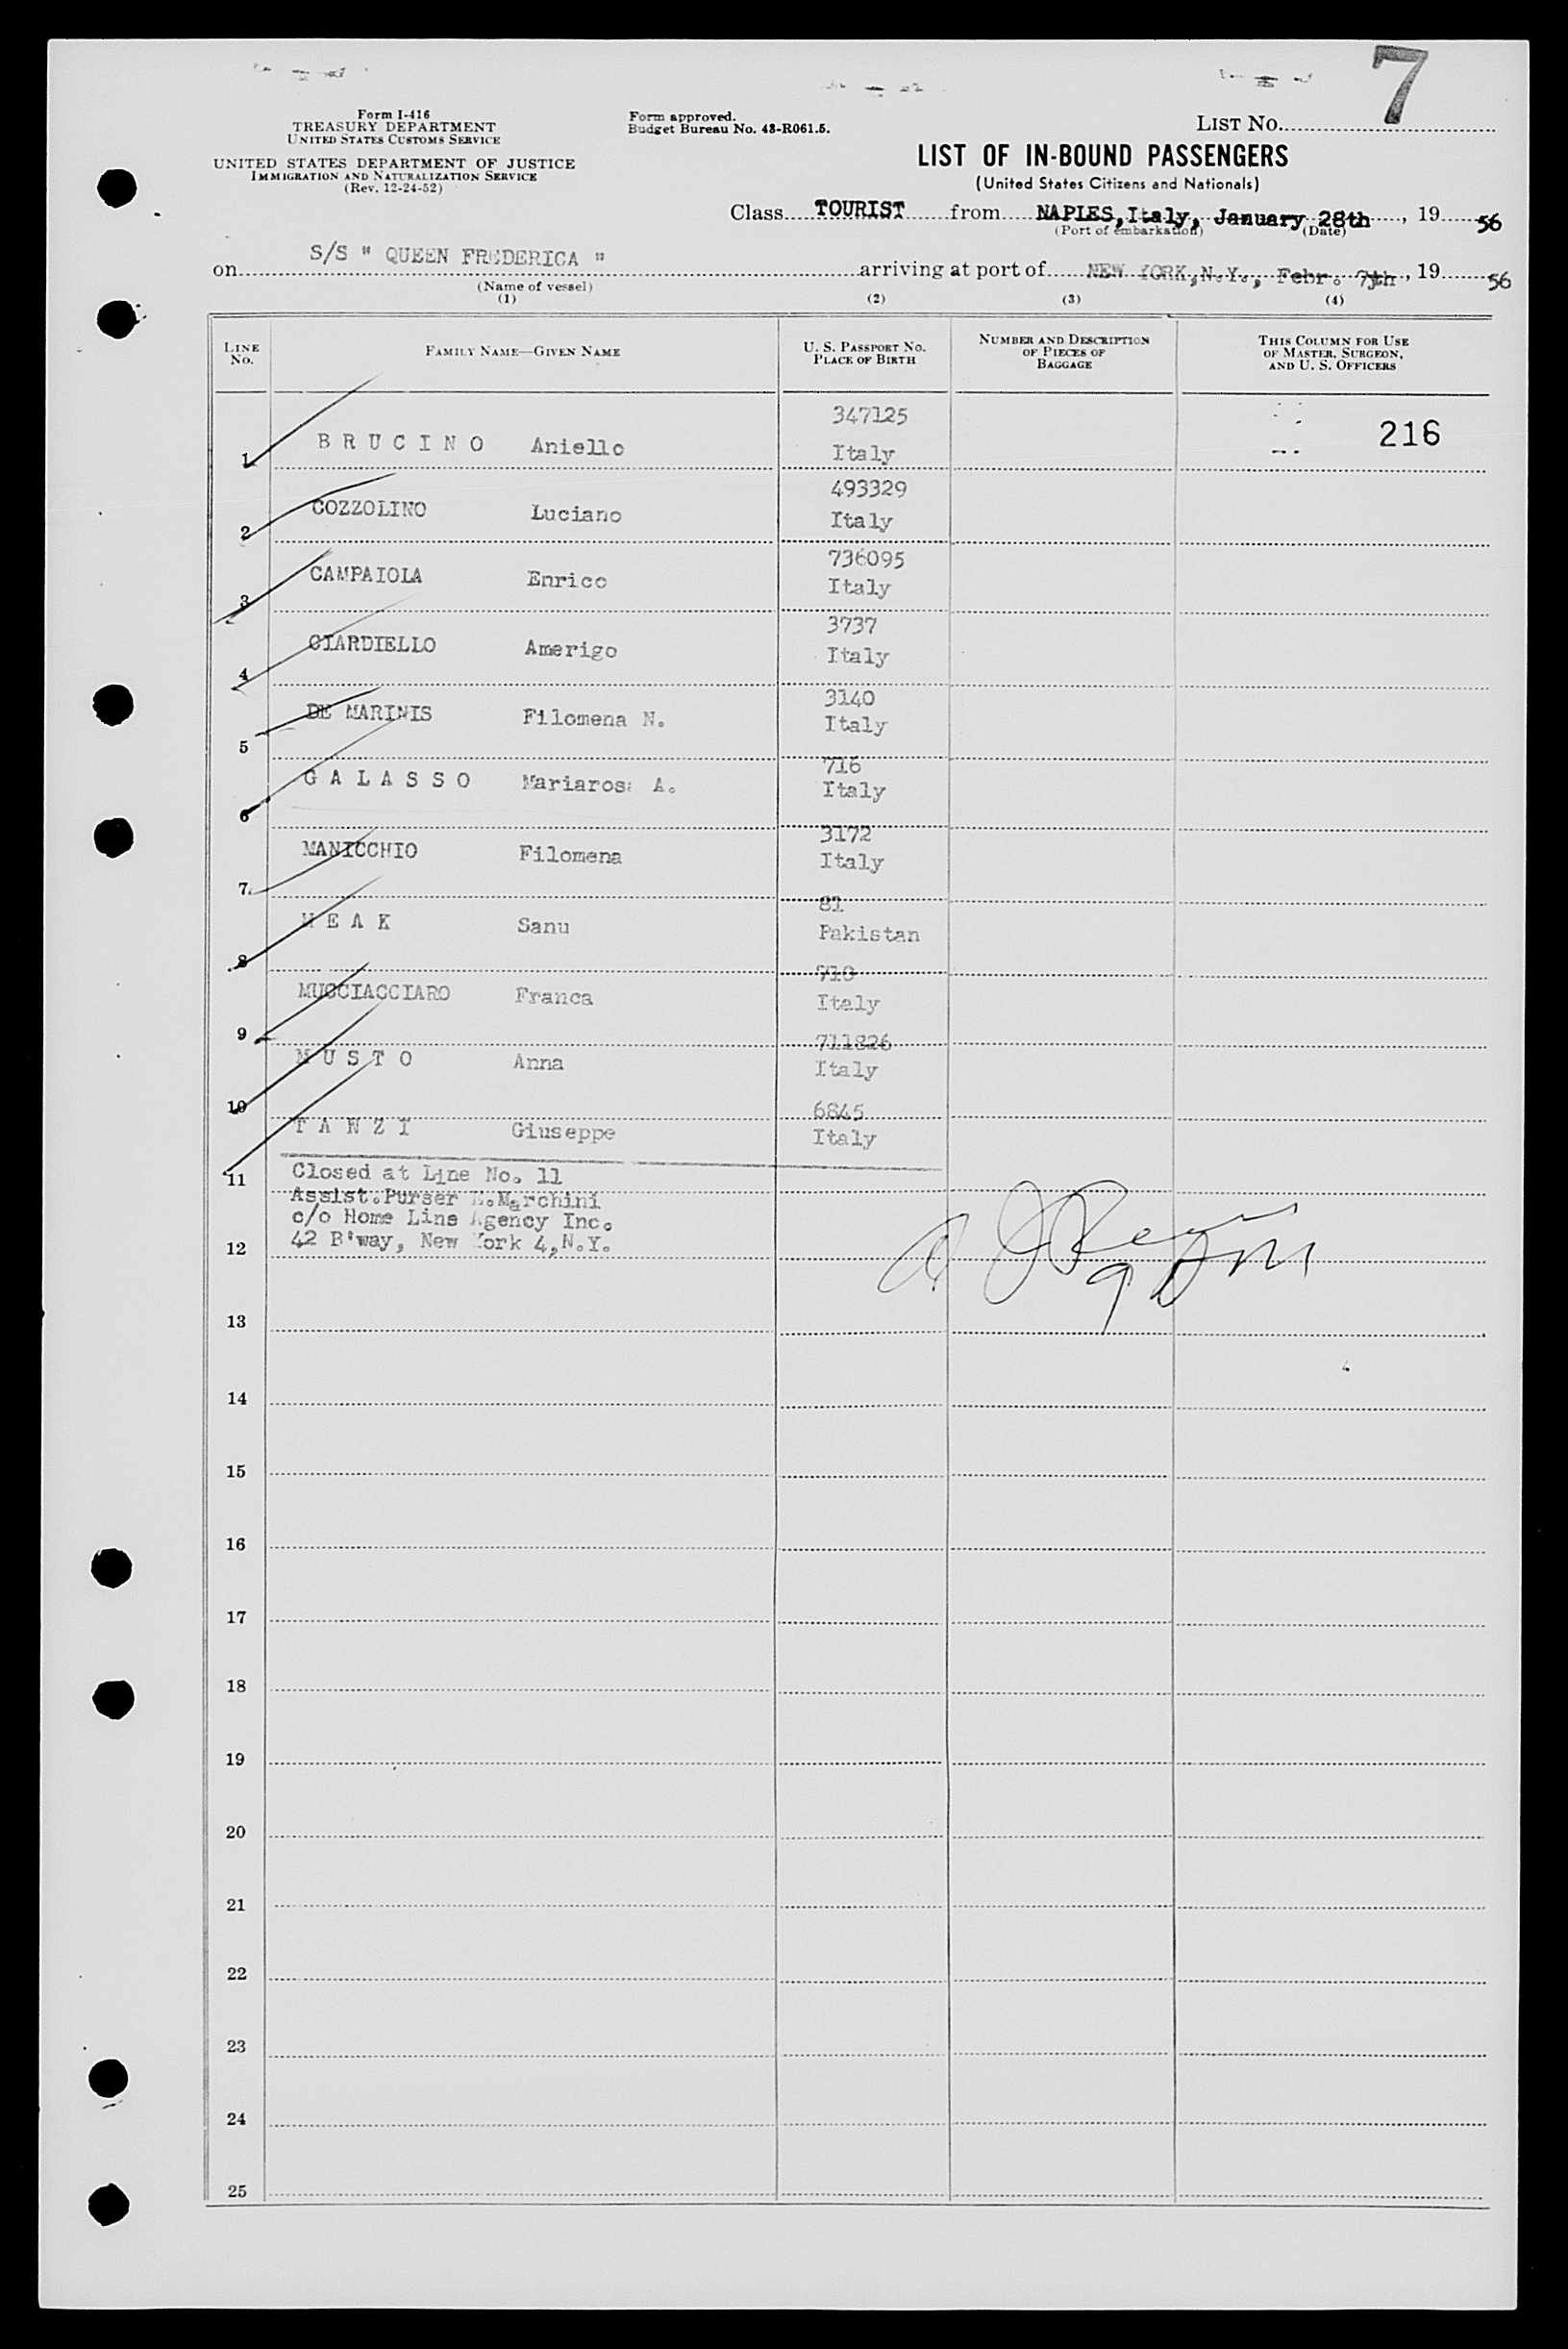 7
Form I-416
TREASURY DEPARTMENT
UNITED STATES CUSTOMS SERVICE
UNITED STATES DEPARTMENT OF JUSTICE
IMMIGRATION AND NATURALIZATION SERVICE
(Rev. 12-24-52)
Form approved.
Budget Bureau No. 43-R061.5.
LIST No.
LIST OF IN-BOUND PASSENGERS
(United States Citizens and Nationals)
Class TOURIST from NAPLES, Italy, January 28th, 19 56
(Port of embarkation) (Date)
on S/S " QUEEN FREDERICA " arriving at port of NEW YORK, N.Y., Febr. 7th, 19 56
(Name of vessel)
(1) (2) (3) (4)
LINE No. FAMILY NAME—GIVEN NAME U. S. PASSPORT No. PLACE OF BIRTH NUMBER AND DESCRIPTION OF PIECES OF BAGGAGE THIS COLUMN FOR USE OF MASTER, SURGEON, AND U. S. OFFICERS
347125 216
1 B R U C I N O Aniello Italy
493329
2 COZZOLINO Luciano Italy
736095
3 CAMPAIOLA Enrico Italy
3737
4 CIARDIELLO Amerigo Italy
3140
5 DE MARINIS Filomena N. Italy
716
6 G A L A S S O Mariarosa A. Italy
3172
7 MANICCHIO Filomena Italy
81
8 M E A K Sanu Pakistan
710
9 MUSCIACCIARO Franca Italy
711826
10 M U S T O Anna Italy
6845
11 T A N Z I Giuseppe Italy
Closed at Line No. 11
Assist.Purser Marchini
c/o Home Line Agency Inc.
12 42 B'way, New York 4, N.Y.
13
14
15
16
17
18
19
20
21
22
23
24
25